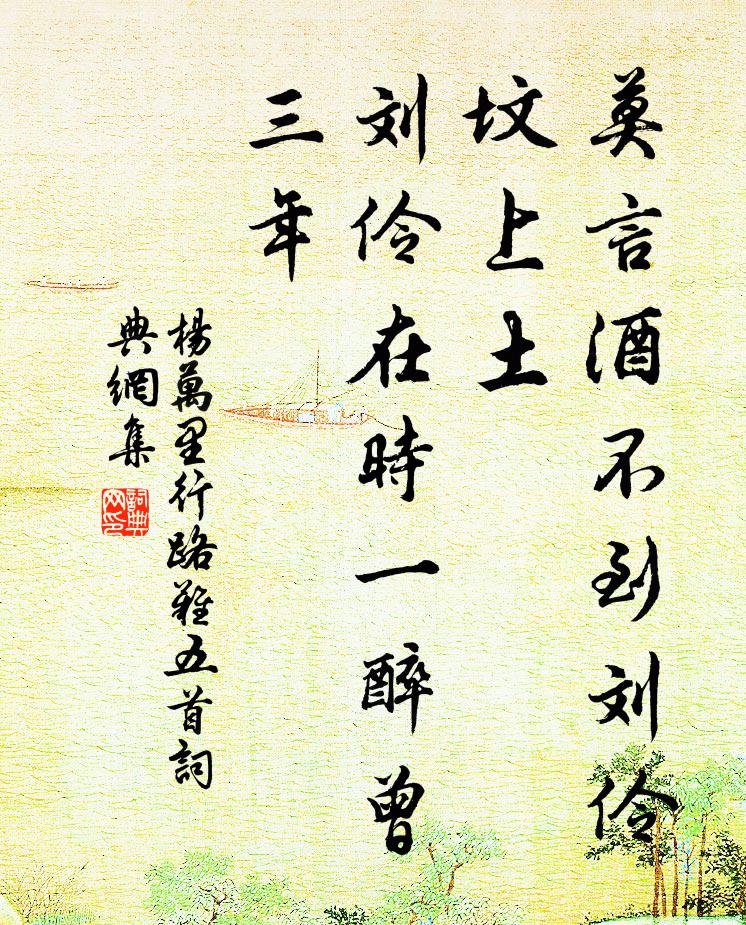 莫言酒不到刘伶
坟上土
刘伶在時一醉曾
三年
楊萬里行路難五首詞
典網集
詞典
网印